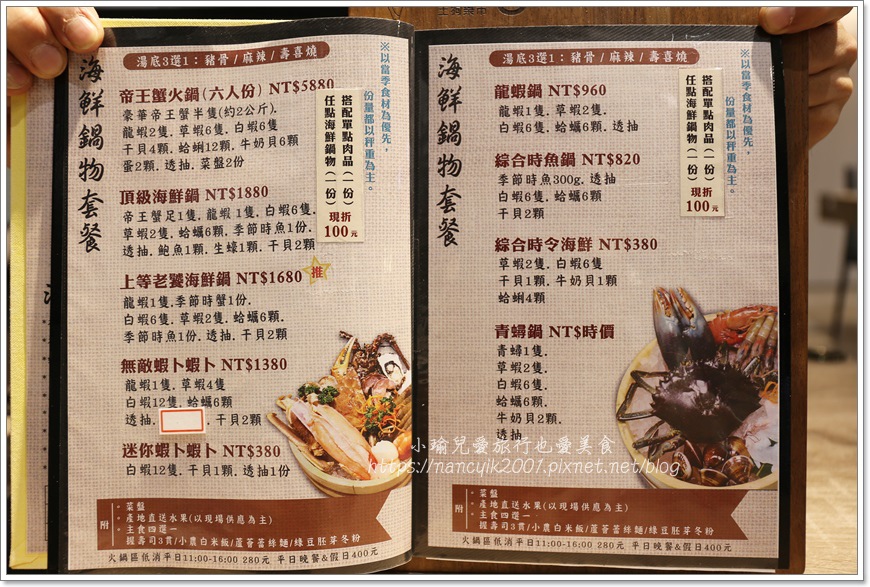 海鮮鍋物套餐
湯底3選1：豬骨/麻辣/壽喜燒
※以當季食材為優先，
份量都以秤重為主。
帝王蟹火鍋(六人份) NT$5880
豪華帝王蟹半隻(約2公斤).
龍蝦2隻.草蝦6隻.白蝦6隻
干貝4顆.蛤蜊12顆.牛奶貝6顆
蛋2顆.透抽.菜盤2份
搭配單點肉品(一份)
任點海鮮鍋物(一份)
現折
100元
頂級海鮮鍋 NT$1880
帝王蟹足1隻.龍蝦1隻.白蝦6隻.
草蝦2隻.蛤蠣6顆.季節時魚1份.
透抽.鮑魚1顆.生蠔1顆.干貝2顆
上等老饕海鮮鍋 NT$1680 推
龍蝦1隻.季節時蟹1份.
白蝦6隻.草蝦2隻.蛤蠣6顆.
季節時魚1份.透抽.干貝2顆
無敵蝦卜蝦卜 NT$1380
龍蝦1隻.草蝦4隻
白蝦12隻.蛤蠣6顆
透抽. .干貝2顆
迷你蝦卜蝦卜 NT$380
白蝦12隻.干貝1顆.透抽1份
附
·菜盤
·產地直送水果(以現場供應為主)
·主食四選一
握壽司3貫/小農白米飯/蘆薈蕾絲麵/綠豆胚芽冬粉
火鍋區低消平日11:00-16:00 280元 平日晚餐&假日400元
海鮮鍋物套餐
湯底3選1：豬骨/麻辣/壽喜燒
※以當季食材為優先，
份量都以秤重為主。
龍蝦鍋 NT$960
龍蝦1隻.草蝦2隻.
白蝦6隻.蛤蠣6顆.透抽
搭配單點肉品(一份)
任點海鮮鍋物(一份)
現折
100元
綜合時魚鍋 NT$820
季節時魚300g.透抽
白蝦6隻.蛤蠣6顆
干貝2顆
綜合時令海鮮 NT$380
草蝦2隻.白蝦6隻
干貝1顆.牛奶貝1顆
蛤蜊4顆
青蟳鍋 NT$時價
青蟳1隻.
草蝦2隻.
白蝦6隻.
蛤蠣6顆.
牛奶貝2顆.
透抽
附
·菜盤
·產地直送水果(以現場供應為主)
·主食四選一
握壽司3貫/小農白米飯/蘆薈蕾絲麵/綠豆胚芽冬粉
火鍋區低消平日11:00-16:00 280元 平日晚餐&假日400元
小瑜兒愛旅行也愛美食
https://nancylk2001.pixnet.net/blog